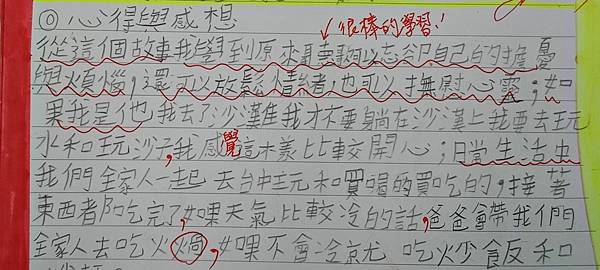 ◎心得與感想
很棒的學習!
從這個故事我學到原來聽歌可以忘卻自己的擔憂
與煩惱,還可以放鬆情緒,也可以撫慰心靈;如
果我是他我去了沙漠我才不要躺在沙漠上我要去玩
水和玩沙子,我感覺這樣比較開心;日常生活中
我們全家人一起去台中玩和買喝的買吃的,接著
東西都吃完了,如果天氣比較冷的話,爸爸會帶我們
全家人去吃火鍋,如果不會冷就吃炒飯和